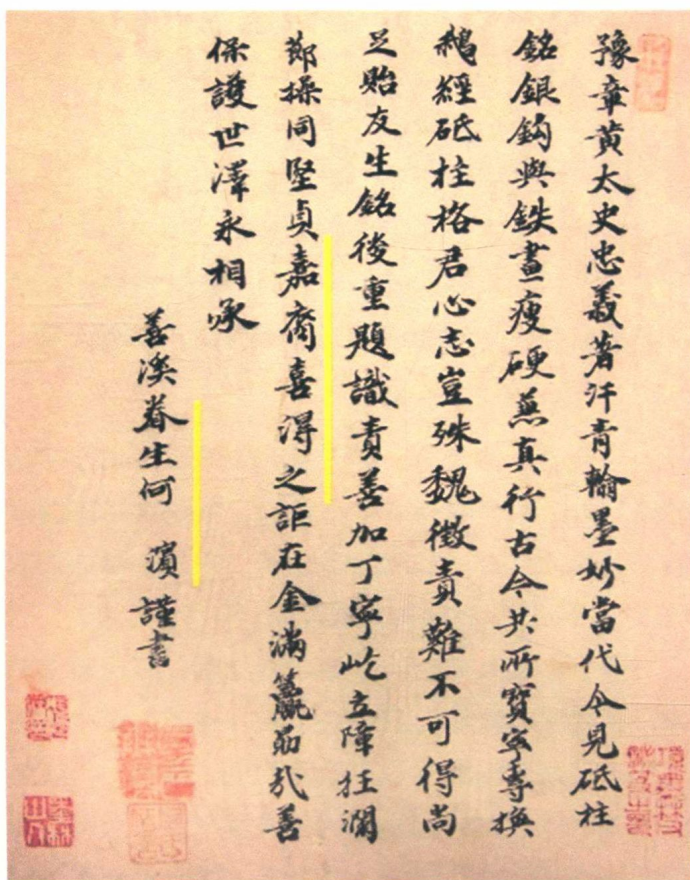 豫章黄太史忠義著汗青翰墨妙當代今見砥柱
銘銀鈎與鉄畫瘦硬兼真行古今共所寳寧專換
鵝經砥柱格君心志豈殊魏徴責難不可得尚
足貽友生銘後重題識責善加丁寧屹立障狂瀾
節操同堅貞嘉裔喜得之詎在金滿籯勗哉善
保護世澤永相承
善溪眷生何 濵 謹書